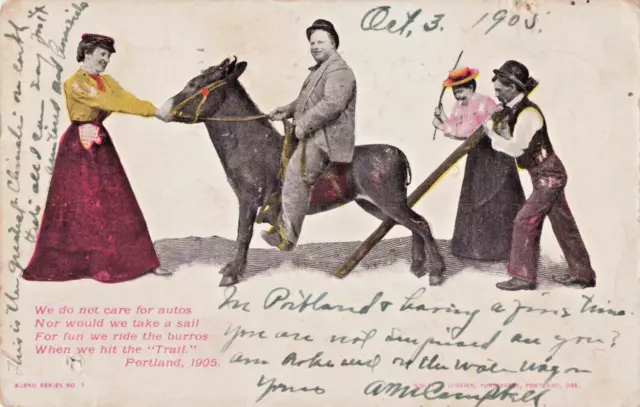 Oct, 3. 1905.
This is the greatest Climate on earth
that's all I can say just
now
We do not care for autos
Nor would we take a sail
For fun we ride the burros
When we hit the "Trail."
Portland, 1905.
In Portland & having a fine time.
You are not surprised are you?
am and on the water wagon
Yours AMCampbell
BURRO SERIES NO. 1
PUBLISHERS, PORTLAND, ORE.